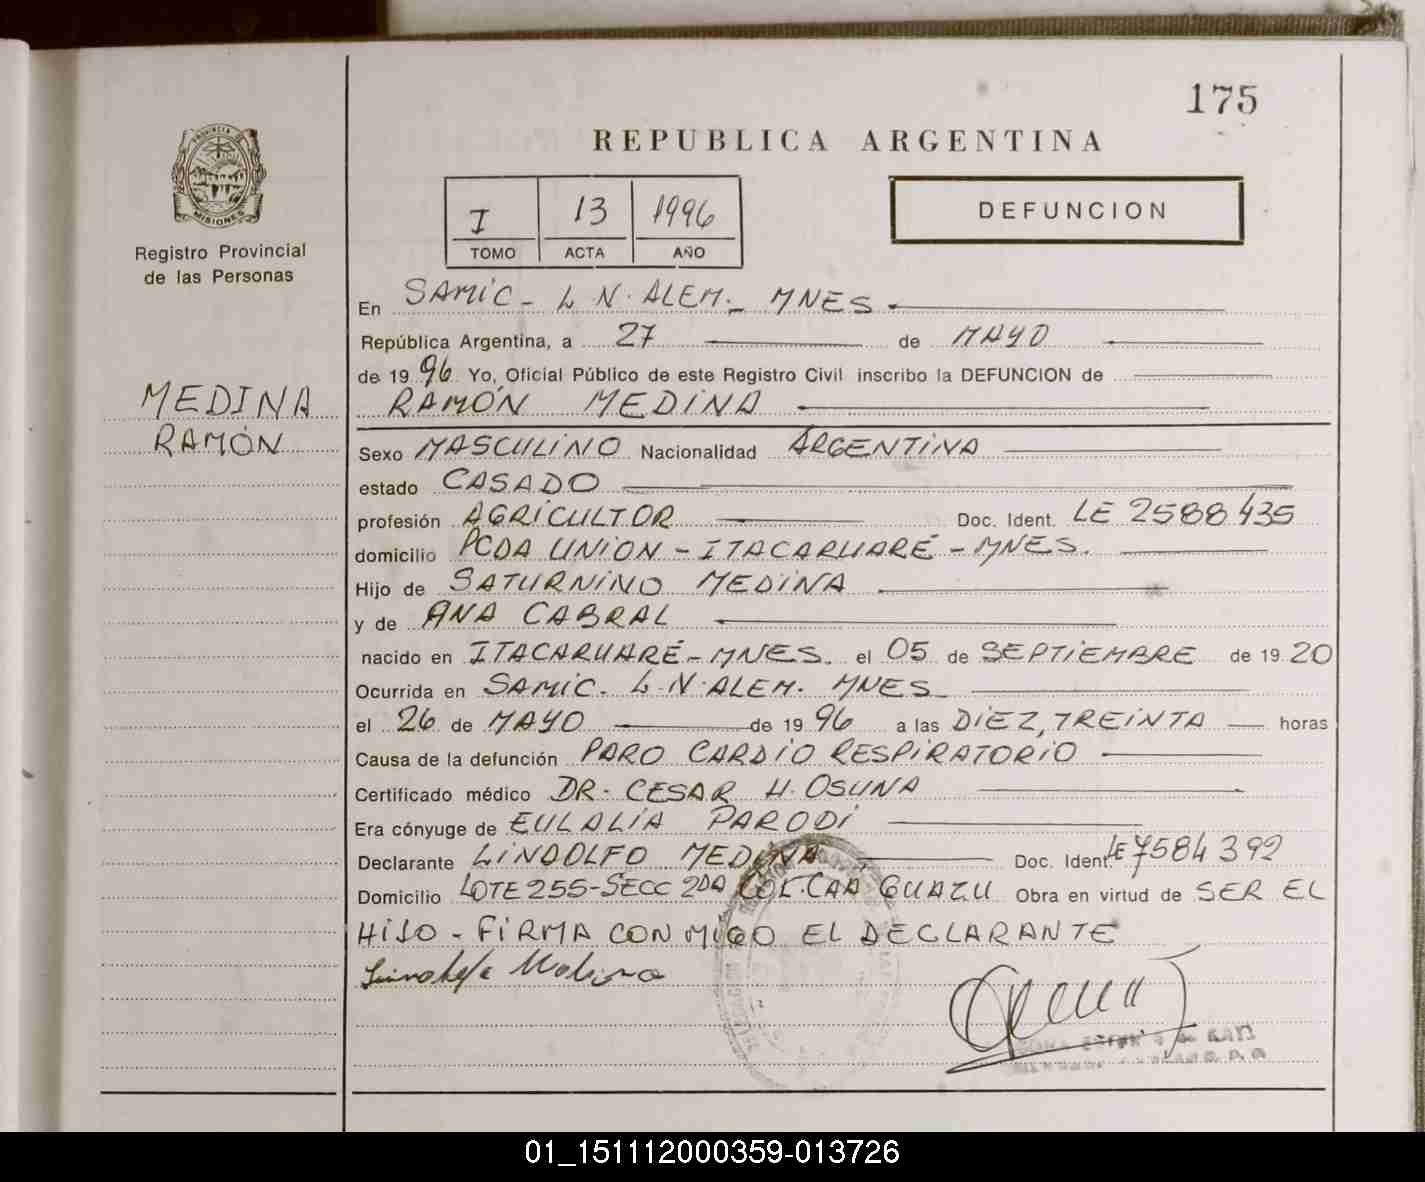 175
REPUBLICA ARGENTINA
PROVINCIA DE
MISIONES
Registro Provincial
de las Personas
I 13 1996
TOMO ACTA AÑO
DEFUNCION
MEDINA
RAMÓN
En SAMIC - L. N. ALEM. - MNES
República Argentina, a 27 de MAYO
de 19 96 Yo, Oficial Público de este Registro Civil inscribo la DEFUNCION de
RAMÓN MEDINA
Sexo MASCULINO Nacionalidad ARGENTINA
estado CASADO
profesión AGRICULTOR Doc. Ident. LE 2588435
domicilio PCDA UNION - ITACARUARÉ - MNES.
Hijo de SATURNINO MEDINA
y de ANA CABRAL
nacido en ITACARUARÉ - MNES. el 05 de SEPTIEMBRE de 19 20
Ocurrida en SAMIC. L. N. ALEM. MNES
el 26 de MAYO de 19 96 a las DIEZ, TREINTA horas
Causa de la defunción PARO CARDIO RESPIRATORIO
Certificado médico DR. CESAR H. OSUNA
Era cónyuge de EULALIA PARODI
Declarante LINDOLFO MEDINA Doc. Ident. LE 7584392
Domicilio LOTE 255 - SECC 2DA COL. CAA GUAZU Obra en virtud de SER EL
HIJO - FIRMA CONMIGO EL DECLARANTE
01_151112000359-013726